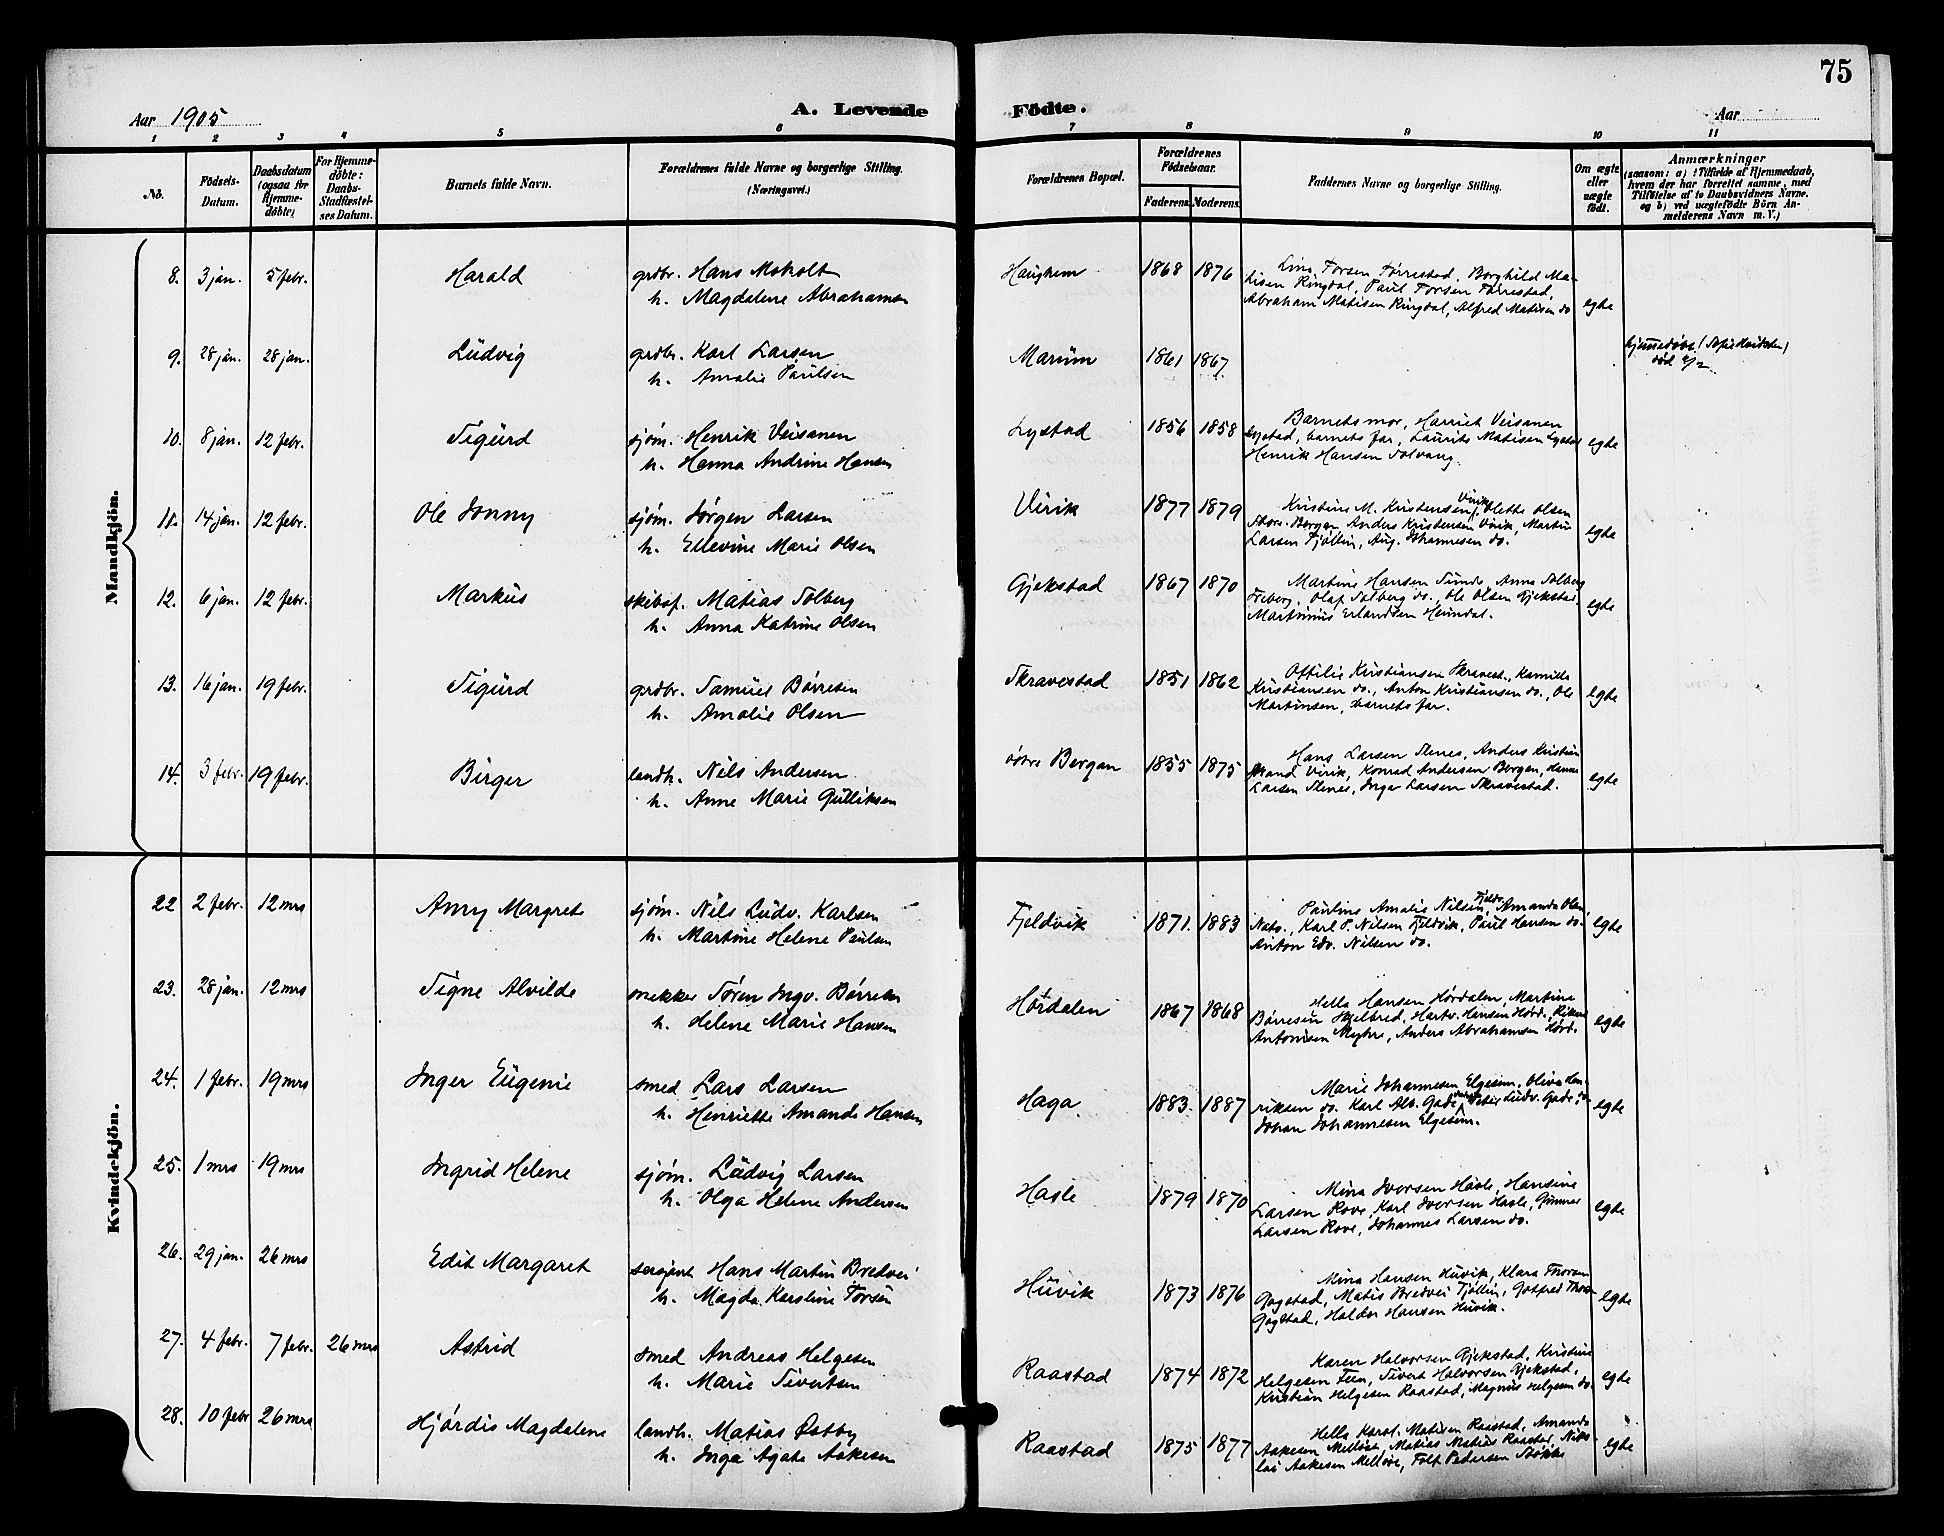 75
Aar 1905 A. Levende Födte. Aar
1 2 3 4 5 6 7 8 9 10 11
No. Födsels-Datum. Daabsdatum (ogsaa for Hjemmedöbte) For Hjemmedöbte: Daabs-Stadfæstelses Datum. Barnets fulde Navn. Forældrenes fulde Navne og borgerlige Stilling. (Næringsvei.) Forældrenes Bopæl. Forældrenes Födselsaar. Faderens. Moderens. Faddernes Navne og borgerlige Stilling. Om ægte eller uægte født. Anmærkninger (saasom: a) i Tilfælde af Hjemmedaab, hvem der har forrettet samme, med Tilföielse af to Daabsvidners Navne. og b) ved uægtefödte Börn Anmelderens Navn m. V.)
Mandkjön.
8. 3 jan. 5 febr. Harald grdbr. Hans Moholt Haughem 1868 1876 Lina Torsen Tørrestad, Borghild Ma-
h. Magdalene Abrahamsen tisen Ringdal, Paul Torsen Tørrestad,
Abraham Matisen Ringdal, Alfred Matisen do egte
9. 28 jan. 28 jan. Ludvig grdbr. Karl Larsen Marum 1861 1867.
h. Amalie Paulsen
død
10. 8 jan. 12 febr. Sigurd sjøm. Henrik Veisanen Lystad 1856 1858 Barnets mor, Harriet Veisanen
h. Hanna Andrine Hansen Lystad, barnets far, Laurits Matisen Lystad egte
Henrik Hansen Solvang.
11. 14 jan. 12 febr. Ole Jonny sjøm. Jørgen Larsen Virik 1877 1879 Kristine M. Kristensen Virik, Olette Olsen
h. Ellevine Marie Olsen Bergan, Anders Kristensen Virik, Martin
Larsen Tjølling, Aug. Johannesen do. egte
12. 6 jan. 12 febr. Markus skibsf. Matias Solberg Gjekstad 1867 1870 Martine Hansen Sunde, Anna Solberg
h. Anna Katrine Olsen Freberg, Olaf Solberg do., Ole Olsen Gjekstad,
Martinius Erlandsen Heimdal. egte
13. 16 jan. 19 febr. Sigurd grdbr. Samuel Børresen Skravestad 1851 1862 Ottilie Kristiansen Skravest., Kamilla
h. Amalie Olsen Kristiansen do., Anton Kristiansen do., Ole
Martinsen, barnets far. egte
14. 3 febr. 19 febr. Birger landh. Nils Andersen østre Bergan 1855 1875 Hans Larsen Stenes, Anders Kristian
h. Anne Marie Gulliksen Strand Virik, Konrad Andersen Bergan, Hanna
Larsen Stenes, Inga Larsen Skravestad. egte
Kvindekjön.
22 2 febr. 12 mrs Anny Margrete sjøm. Nils Ludv. Karlsen Fjeldvik 1871. 1883 Pauline Amalie Nilsen Fjeldv. Amanda Olsen,
h. Martine Helene Paulsen Karl P. Nilsen Fjeldvik, Paul Hansen do. egte
Anton Edv. Nilsen do.
23. 28 jan. 12 mrs Signe Alvilde snekker Søren Ingv. Børresen Hørdalen 1867 1868 Hella Hansen Hørdalen, Martine
h. Helene Marie Hansen Børresen Skjelbred, Hartv. Hansen Hørd.,
Antonisen Myhre, Anders Abrahamsen Hørd. egte
24. 1 febr. 19 mrs Inger Eugenie smed Lars Larsen Haga 1883. 1887 Marie Johannesen Elgesem, Oliva Hen-
h. Henriette Amanda Hansen riksen do. Karl Alb. Gade, Peter Ludv. Gade, do
Johan Johannesen Elgesem. egte
25. 1 mrs 19 mrs Ingrid Helene sjøm. Ludvig Larsen Hasle 1879 1870 Mina Iversen Hasle, Hansine
h. Olga Helene Andersen Larsen Rove, Karl Iversen Hasle, Gunner
Larsen Rove, Johannes Larsen do. egte
26. 29 jan. 26 mrs Edit Margaret sersjant Hans Martin Bredvei Huvik 1873 1876 Mina Hansen Huvik, Klara Thorsen
h. Magda Karoline Torsen Gogstad, Matis Bredvei Tjølling, Gotfred Thorsen
Gogstad, Haldor Hansen Huvik. egte
27. 4 febr. 7 febr. 26 mrs Astrid smed Andreas Helgesen Raastad 1874 1872 Karen Halvorsen Gjekstad, Kristine
h. Marie Sivertsen Helgesen Feen, Sivert Halvorsen Gjekstad,
Kristian Helgesen Raastad, Magnus Helgesen do. egte
28. 10 febr 26 mrs Hjørdis Magdalene landh. Matias Østby Raastad 1875 1877 Hella Karol. Matisen Raastad, Amanda
h. Inga Agate Aakesen Aakesen Melløse, Matias Matisen Raastad, Niko-
lai Aakesen Melløse, Pedersen Stokke egte